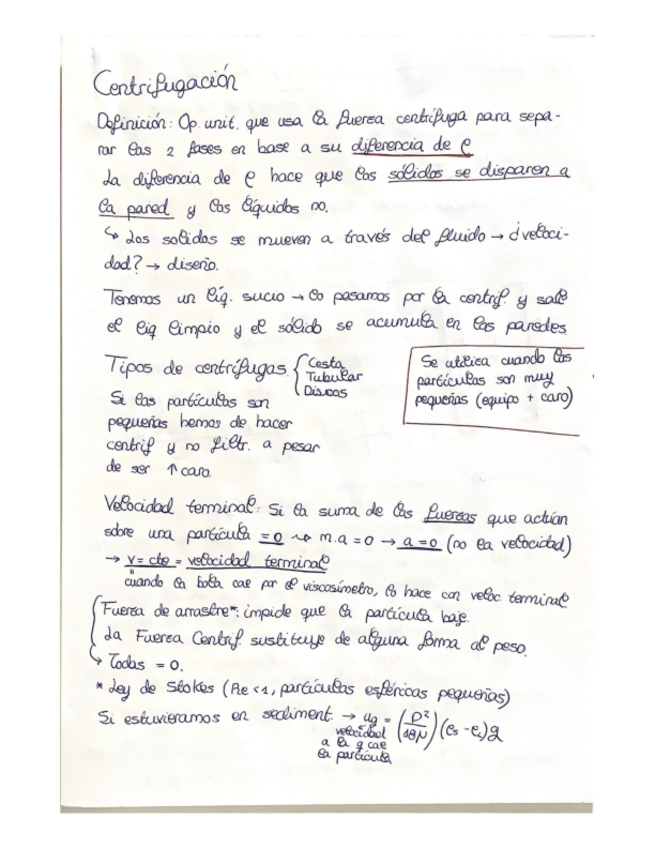 Centrifugación
Definición: Op. unit. que usa la fuerza centrífuga para sepa-
rar las 2 fases en base a su diferencia de ρ
La diferencia de ρ hace que los sólidos se disparen a
la pared y los líquidos no.
↳ Los solidos se mueven a través del fluido → ¿veloci-
dad? → diseño.
Tenemos un líq. sucio → lo pasamos por la centrif. y sale
el liq limpio y el sólido se acumula en las paredes.
Tipos de centrífugas { Cesta
Tubular
Discos
Se utiliza cuando las
partículas son muy
pequeñas (equipo + caro)
Si las partículas son
pequeñas hemos de hacer
centrif y no filtr. a pesar
de ser ↑ caro.
Velocidad terminal: Si la suma de las fuerzas que actúan
sobre una partícula = 0 ⇝ m.a = 0 → a = 0 (no la velocidad)
→ v = cte = velocidad terminal
cuando la bola cae por el viscosímetro, lo hace con veloc terminal
Fuerza de arrastre*: impide que la partícula baje.
La Fuerza Centrif. sustituye de alguna forma al peso.
↳ Todas = 0.
* Ley de Stokes (Re < 1, partículas esféricas pequeñas)
Si estuvieramos en sediment. → ug = (D²/18μ) (ρs - ρL) g
velocidad
a la q cae
la partícula